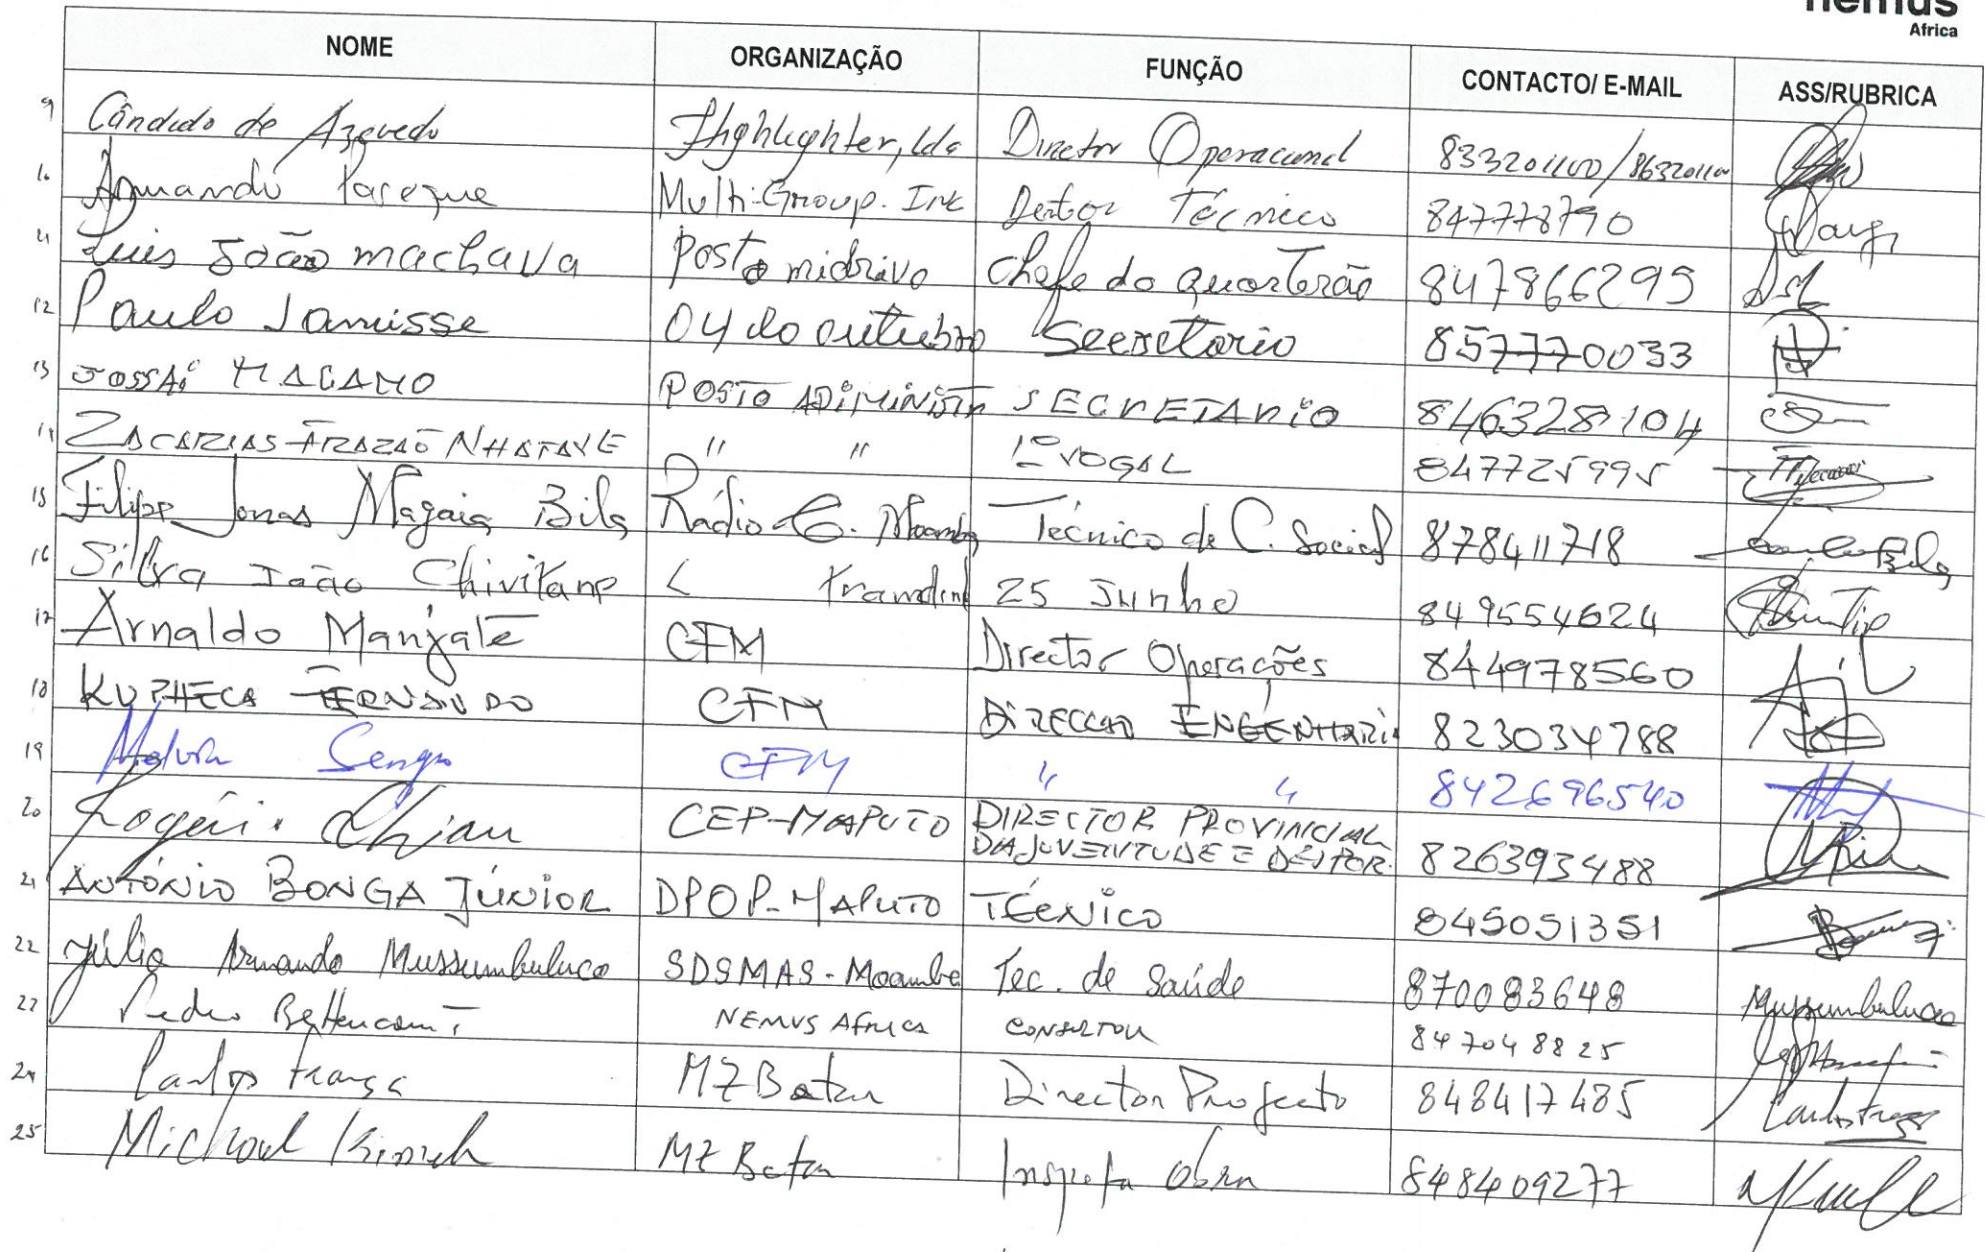 nemus
Africa
NOME ORGANIZAÇÃO FUNÇÃO CONTACTO/ E-MAIL ASS/RUBRICA
9 Cândido de Azevedo Highlighter, lda Director Operacional 833201100/863201100
10 Armando Pareque Multi-Group. Inc Técnico 847778790
11 Luis João machava Posto Chefe do quarterão 847866295
12 Paulo Jamisse 04 do outubro Seecretario 857770033
13 JOSSAI MACAMO POSTO ADIMINISTR SECRETARIO 846328104
14 ZACARIAS FRAZAO NHATAVE " " 1º VOGAL 847725995
15 Filipe Jonas Magaia Bila Rádio C. Moamba Técnico de C. Social 878411718
16 Silva João Chivitane 25 Junho 849554624
17 Arnaldo Manjate CFM Director Operações 844978560
18 FERNANDO CFM DIRECCAO ENGENHARIA 823034788
19 CFM " " 842696540
20 Rogério CEP-MAPUTO DIRECTOR PROVINCIAL
DA JUVENTUDE E DESPOR. 826393488
21 ANTÓNIO BONGA JÚNIOR DPOP-MAPUTO TÉCNICO 845051351
22 Júlio Armando Mussumbuluco SDSMAS-Moamba Tec. de Saúde 870083648 Mussumbuluco
23 Pedro Bettencourt NEMUS AFRICA CONSULTOR 847048825
24 Carlos França MZBetar Director Projecto 848417485 Carlos França
25 Michael MZ Betar Obra 848409277